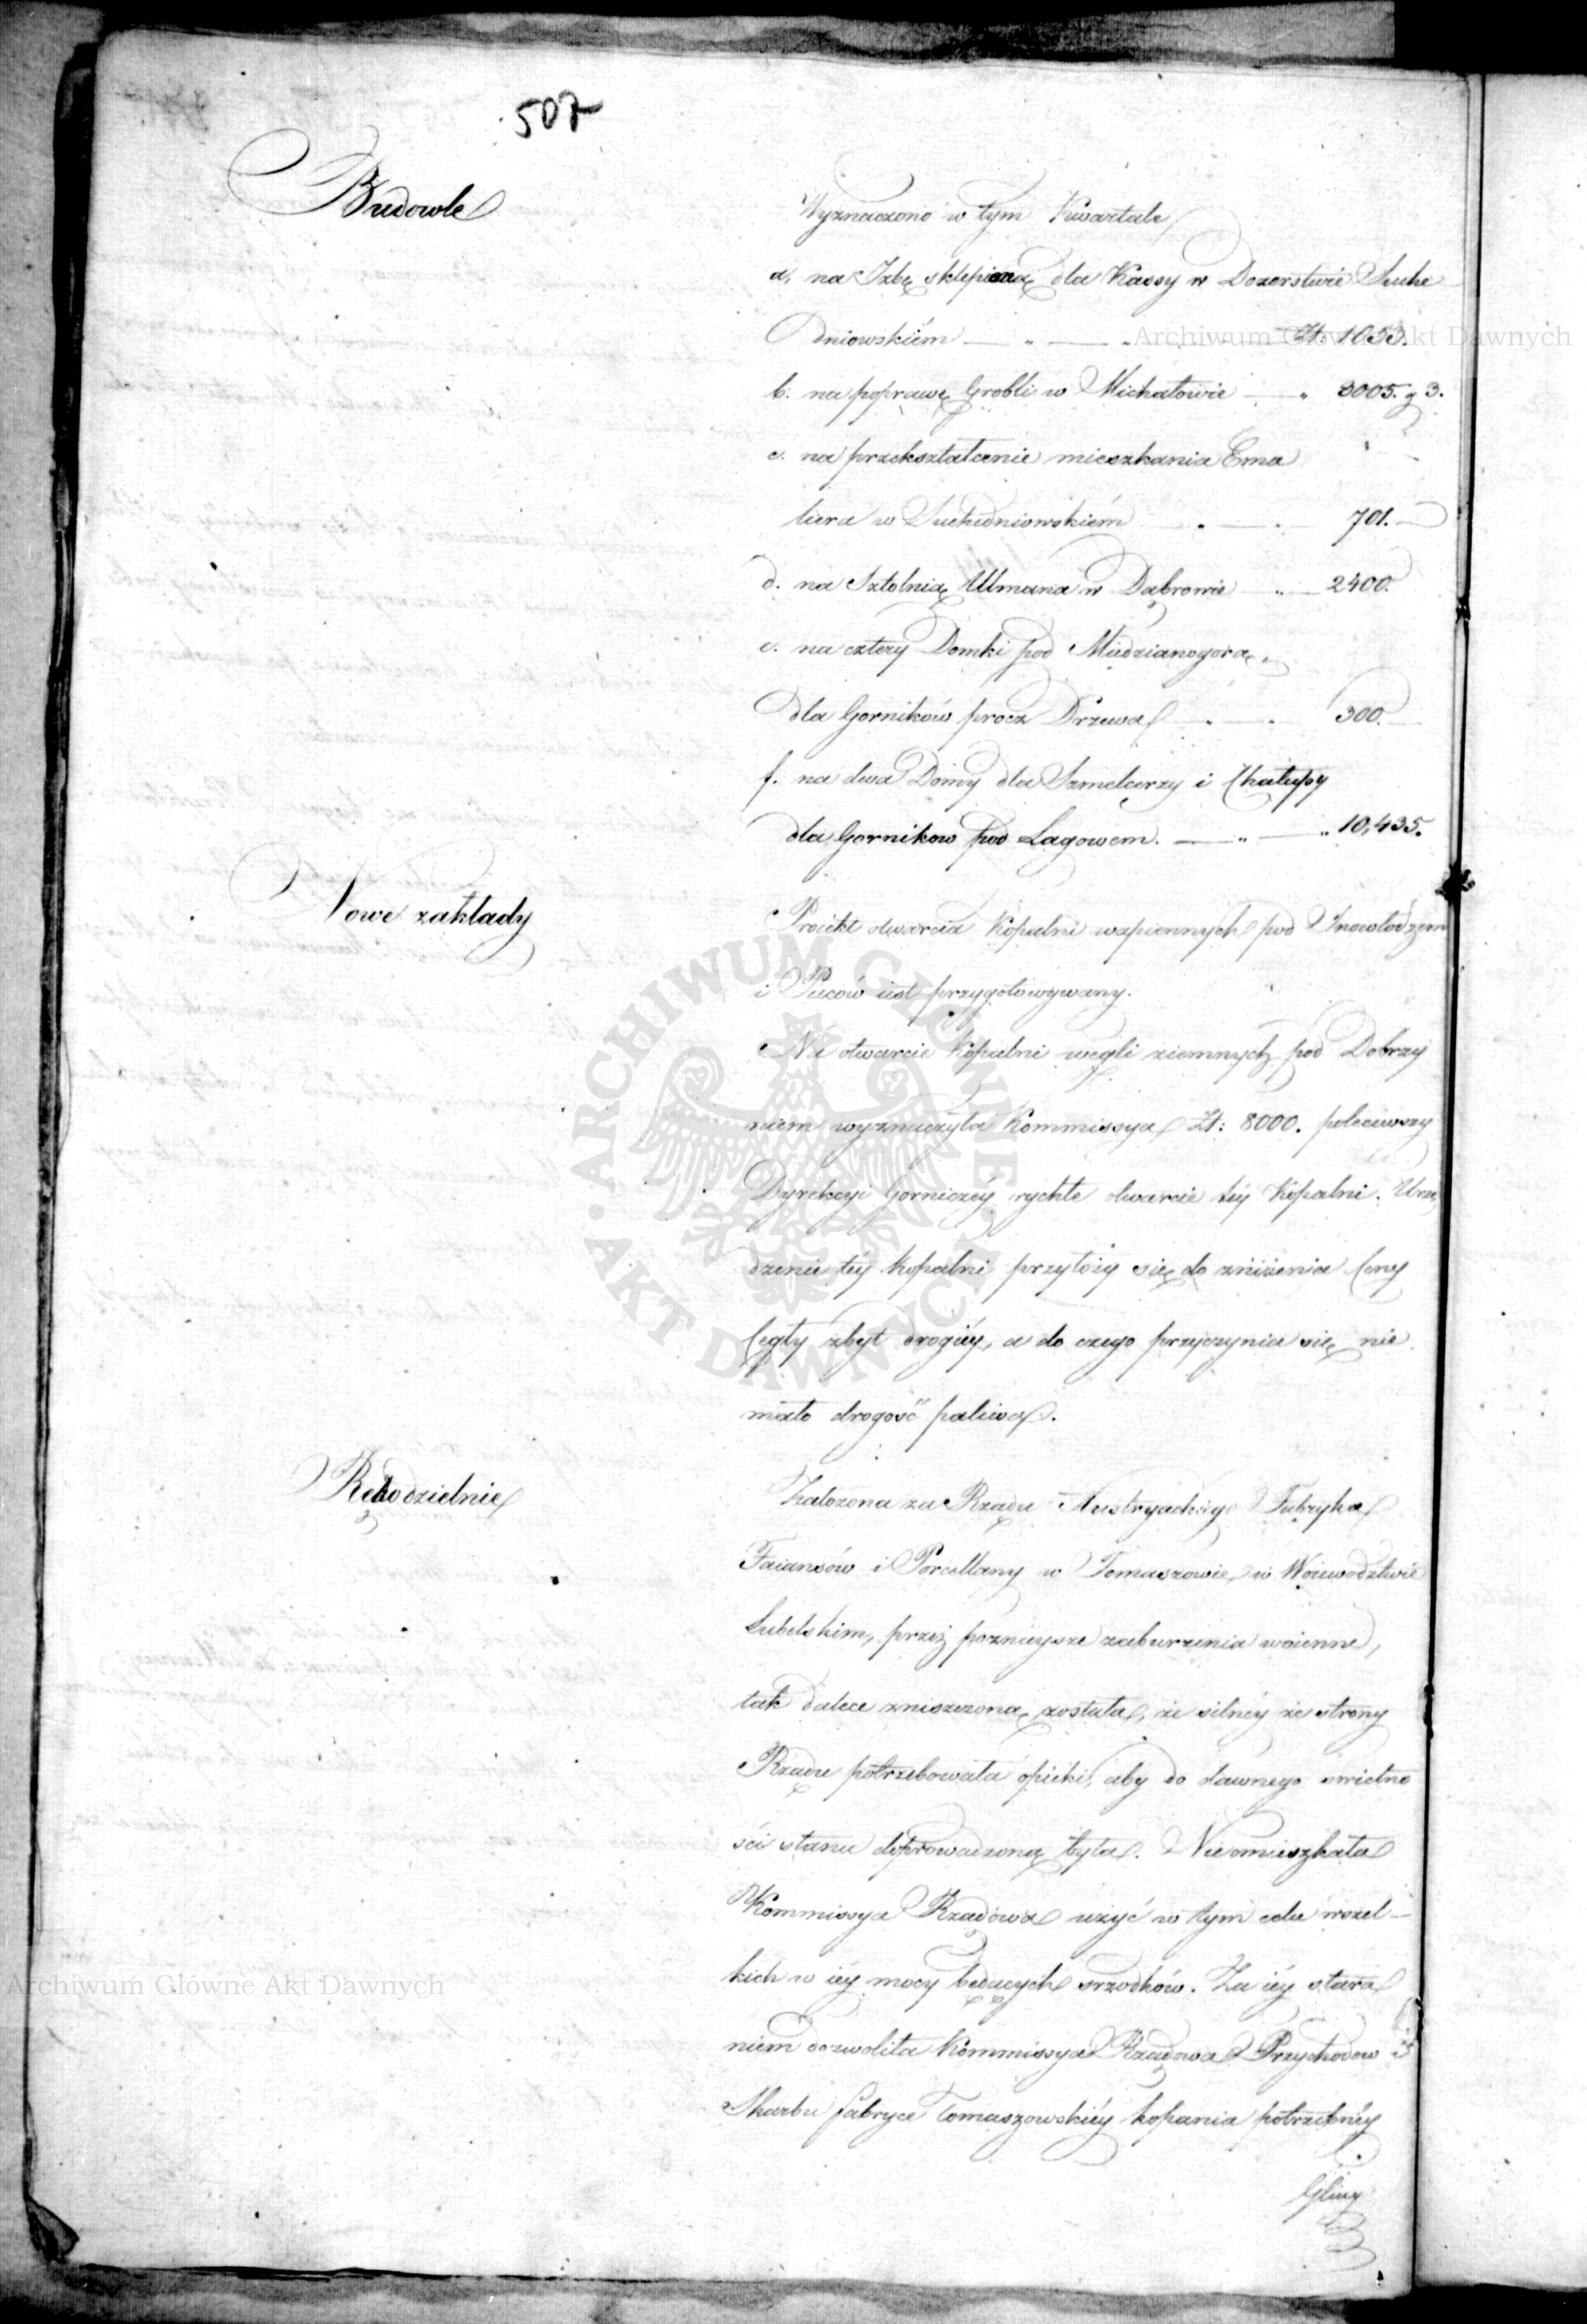 507
Budowle
Wyznaczono w tym Kwartale
a. na Izbę sklepioną dla Kassy w Dozorstwie Suche
dniowskiém — „ — „ Zł. 1053.
b. na poprawę Grobli w Michałowie — „ 3005. g 3.
c. na przekształcenie mieszkania Ema
liera w Suchedniowskiém — „ — „ 701. —
d. na Sztolnią Ullmana w Dąbrowie — „ — 2400.
e. na cztery Domki pod Miedzianogorą,
dla Gorników procz Drzewa — „ — „ 300. —
f. na dwa Domy dla Szmelcerzy i Chałupy
dla Gornikow pod Łagowem. — „ — „ 10,435.
Nowe zakłady
Proiekt otwarcia Kopalni wapiennych pod Inowłodzem
i Pieców iest przygotowywany.
Na otwarcie Kopalni węgli ziemnych pod Dobrzy
niem wyznaczyła Kommissya Zł: 8000. poleciwszy
Dyrekcyi Gorniczéy rychłe otwarcie téy Kopalni. Urzą
dzenie téy Kopalni przyłoży się do zniżenia Ceny
Cegły zbyt drogiéy, a do czego przyczynia się nie
mało drogość paliwa.
Rękodzielnie
Założona za Rządu Austryackiego Fabryka
Faiansów i Porcellany w Tomaszowie, w Woiewodztwie
Lubelskim, przez poznieysze zaburzenia woienne,
tak dalece zniszczoną została, że silnéy ze strony
Rządu potrzebowała opieki, aby do dawnego swietno
ści stanu doprowadzoną była. Nieomieszkała
Kommissya Rządowa użyć w tym celu wszel-
kich w iéy mocy będących srzodków. Za iéy stara
niem dozwoliła Kommissya Rządowa Przychodow i
Skarbu fabryce Tomaszowskiéy kopania potrzebnéy
Gliny
Archiwum Główne Akt Dawnych
ARCHIWUM GŁÓWNE AKT DAWNYCH
Archiwum Główne Akt Dawnych